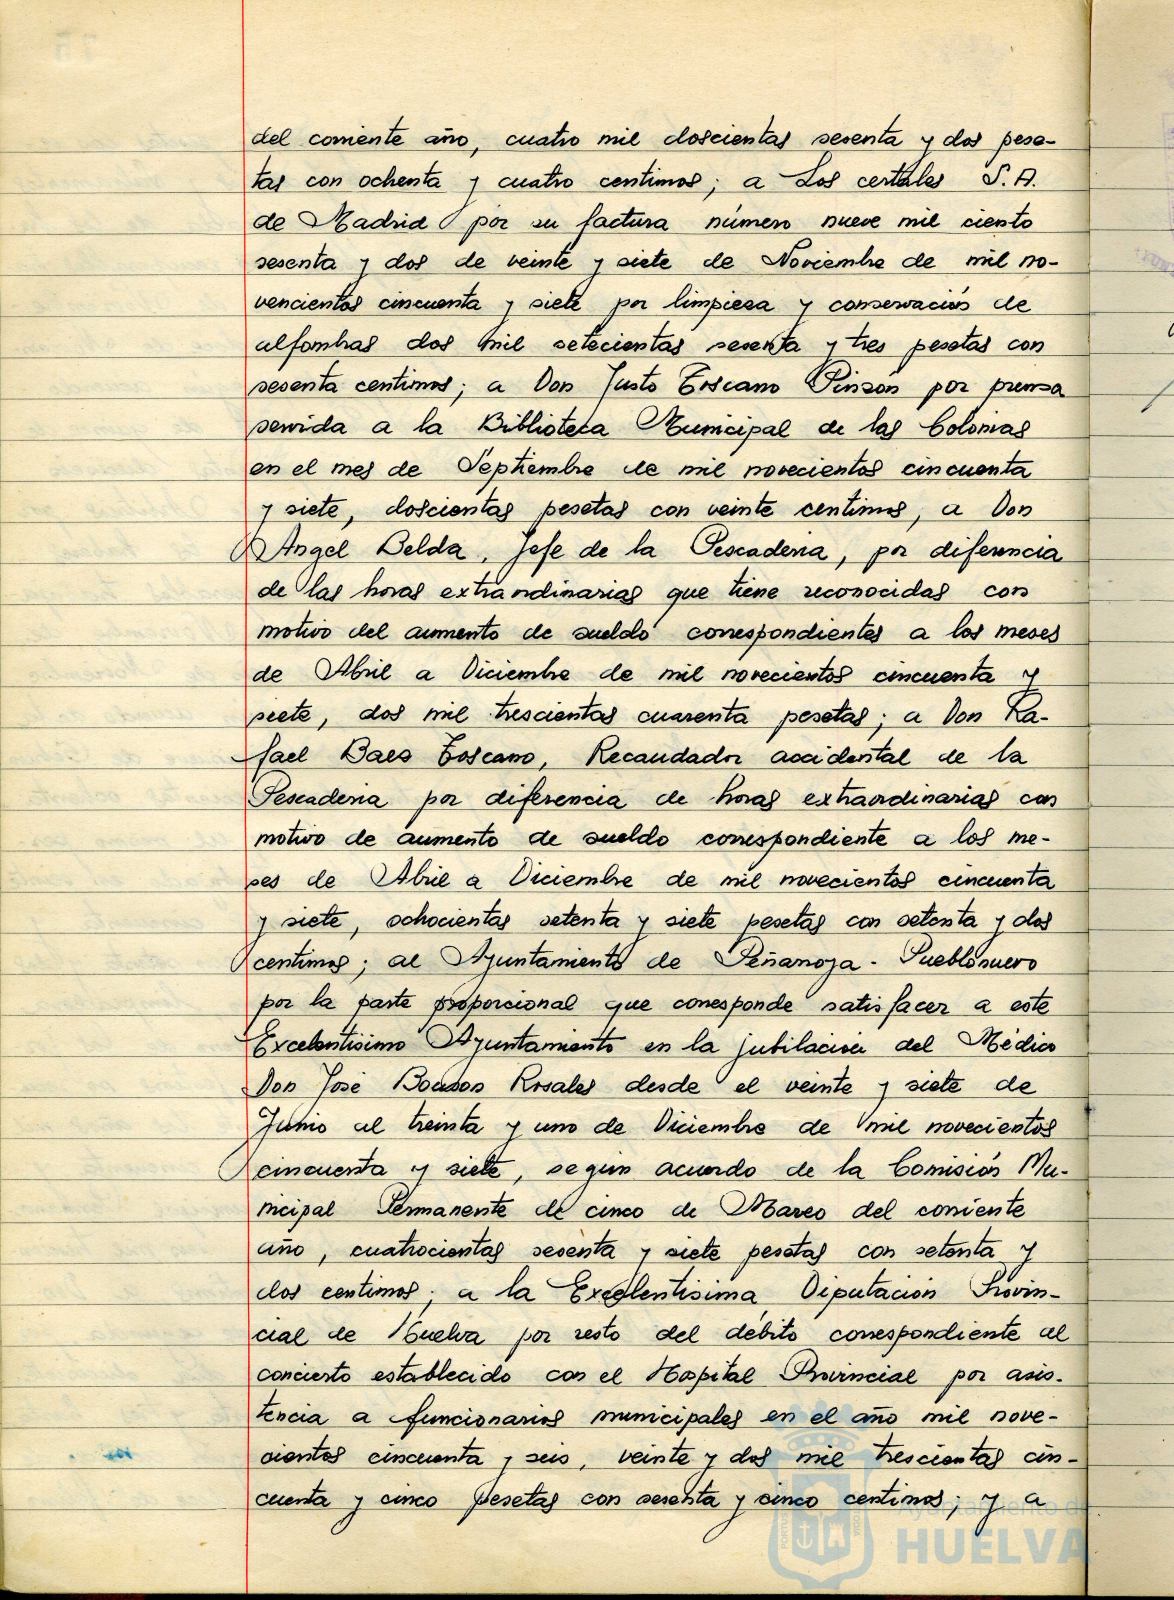 del corriente año, cuatro mil doscientas sesenta y dos pese-
tas con ochenta y cuatro centimos; a Los certales S.A.
de Madrid por su factura número nueve mil ciento
sesenta y dos de veinte y siete de Noviembre de mil no-
vencientos cincuenta y siete por limpieza y conservación de
alfombras dos mil setecientas sesenta y tres pesetas con
sesenta centimos; a Don Justo Toscano Pinzón por prensa
servida a la Biblioteca Municipal de las Colonias
en el mes de Septiembre de mil novecientos cincuenta
y siete, doscientas pesetas con veinte centimos, a Don
Angel Belda, Jefe de la Pescaderia, por diferencia
de las horas extraordinarias que tiene reconocidas con
motivo del aumento de sueldo correspondientes a los meses
de Abril a Diciembre de mil novecientos cincuenta y
siete, dos mil trescientas cuarenta pesetas; a Don Ra-
fael Baes Toscano, Recaudador accidental de la
Pescaderia por diferencia de horas extraordinarias con
motivo de aumento de sueldo correspondiente a los me-
ses de Abril a Diciembre de mil novecientos cincuenta
y siete, ochocientas setenta y siete pesetas con setenta y dos
centimos; al Ayuntamiento de Peñarroya - Pueblonuevo
por la parte proporcional que corresponde satisfacer a este
Excelentisimo Ayuntamiento en la jubilación del Médico
Don José Rosales desde el veinte y siete de
Junio al treinta y uno de Diciembre de mil novecientos
cincuenta y siete, según acuerdo de la Comisión Mu-
nicipal Permanente de cinco de Marzo del corriente
año, cuatrocientas sesenta y siete pesetas con setenta y
dos centimos; a la Excelentisima Diputación Provin-
cial de Huelva por resto del débito correspondiente al
concierto establecido con el Hospital Provincial por asis-
tencia a funcionarios municipales en el año mil nove-
cientos cincuenta y seis, veinte y dos mil trescientas cin-
cuenta y cinco pesetas con sesenta y cinco centimos; y a
Ayuntamiento de
HUELVA